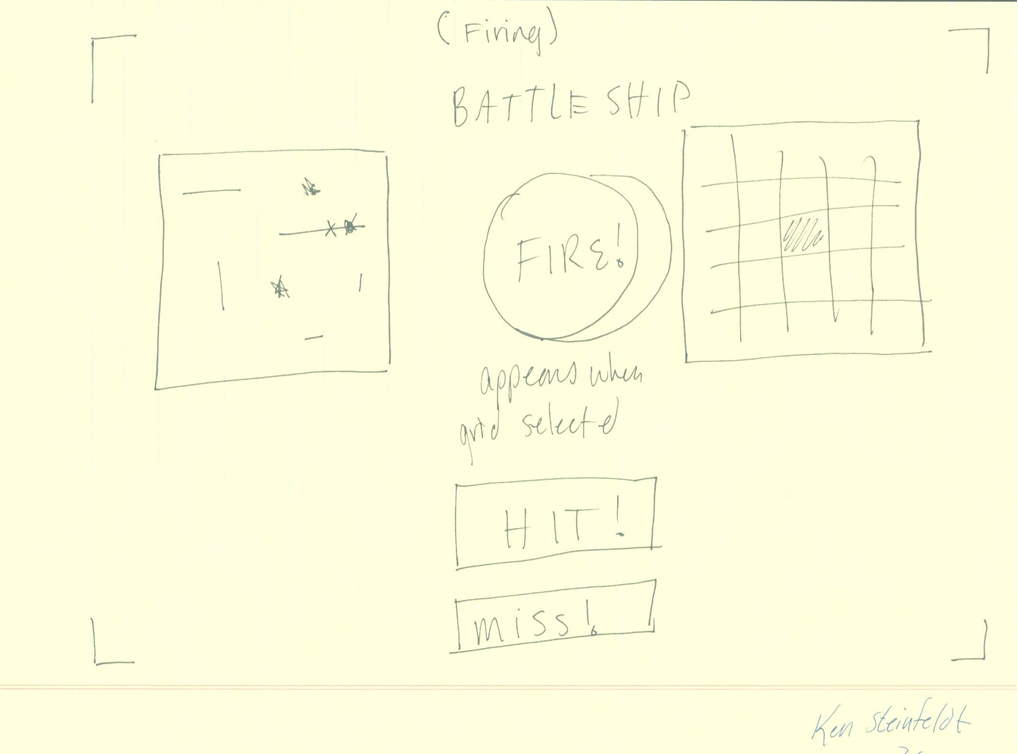 (Firing)
BATTLESHIP
FIRE!
appears when
grid selected
HIT!
miss!
Ken Steinfeldt